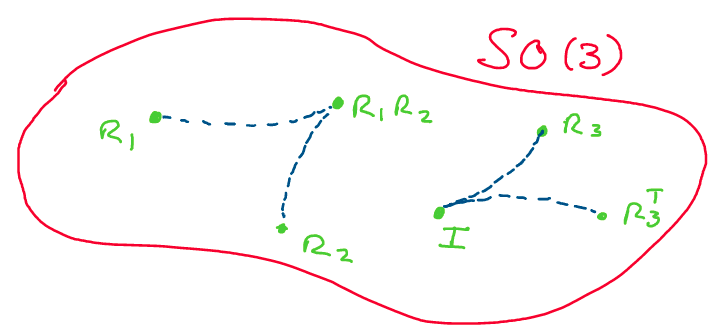 SO(3)
R₁
R₁R₂
R₂
R₃
I
R₃ᵀ